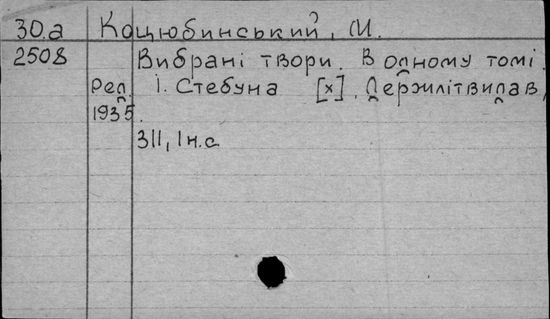 30.а Коцюбинський, М.
2508 Вибрані твори. В одному томі.
Ред. І. Стебуна [х]. Держлітвидав,
1935.
311, 1н.с